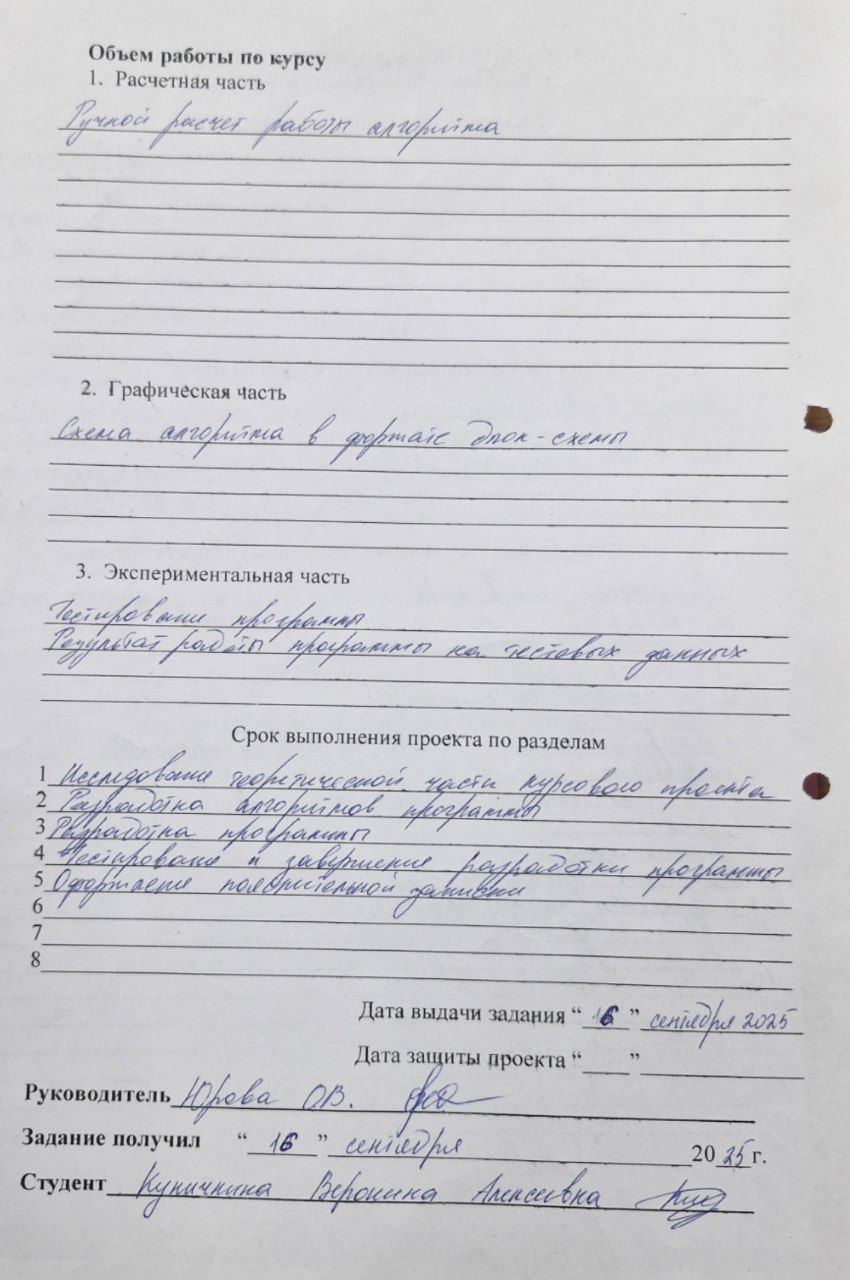 Объем работы по курсу
1. Расчетная часть
Ручной расчет работы алгоритма
2. Графическая часть
Схема алгоритма в формате блок-схемы
3. Экспериментальная часть
Тестирование программы
Результат работы программы на тестовых данных
Срок выполнения проекта по разделам
1 Исследование теоретической части курсового проекта
2 Разработка алгоритмов программы
3 Разработка программы
4 Тестирование и завершение разработки программы
5 Оформление пояснительной записки
6
7
8
Дата выдачи задания “ 16 ” сентября 2025
Дата защиты проекта “ ”
Руководитель Юрова О.В.
Задание получил “ 16 ” сентября 20 25 г.
Студент Вероника Алексеевна